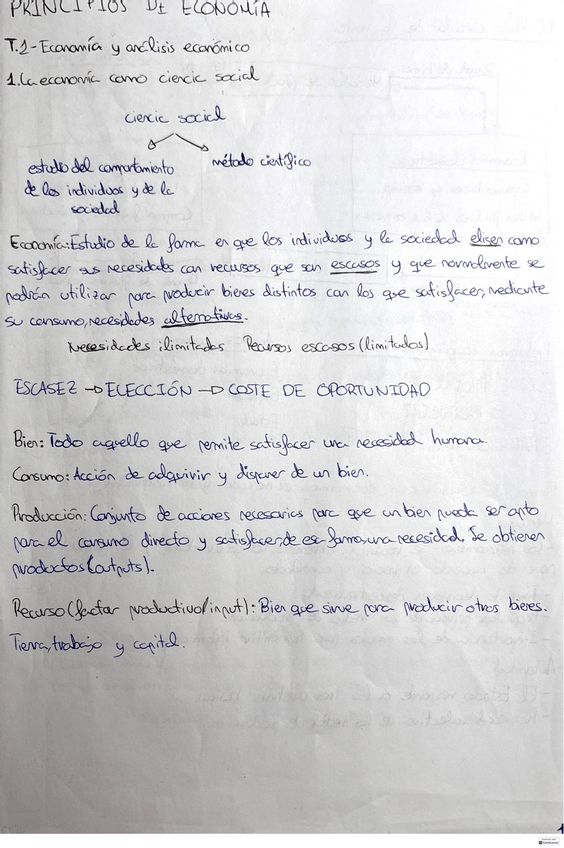 PRINCIPIOS DE ECONOMÍA
T.1-Economía y análisis económico
1. La economía como ciencia social
ciencia social
estudio del comportamiento
de los individuos y de la
sociedad
método científico
Economía: Estudio de la forma en que los individuos y la sociedad eligen como
satisfacer sus necesidades con recursos que son escasos y que normalmente se
podrán utilizar para producir bienes distintos con los que satisfacer, mediante
su consumo, necesidades alternativas.
Necesidades ilimitadas Recursos escasos (limitados)
ESCASEZ → ELECCIÓN → COSTE DE OPORTUNIDAD
Bien: Todo aquello que permite satisfacer una necesidad humana.
Consumo: Acción de adquirir y disponer de un bien.
Producción: Conjunto de acciones necesarias para que un bien pueda ser apto
para el consumo directo y satisfacer, de esa forma, una necesidad. Se obtienen
productos (outputs).
Recurso (factor productivo/input): Bien que sirve para producir otros bienes.
Tierra, trabajo y capital.
1